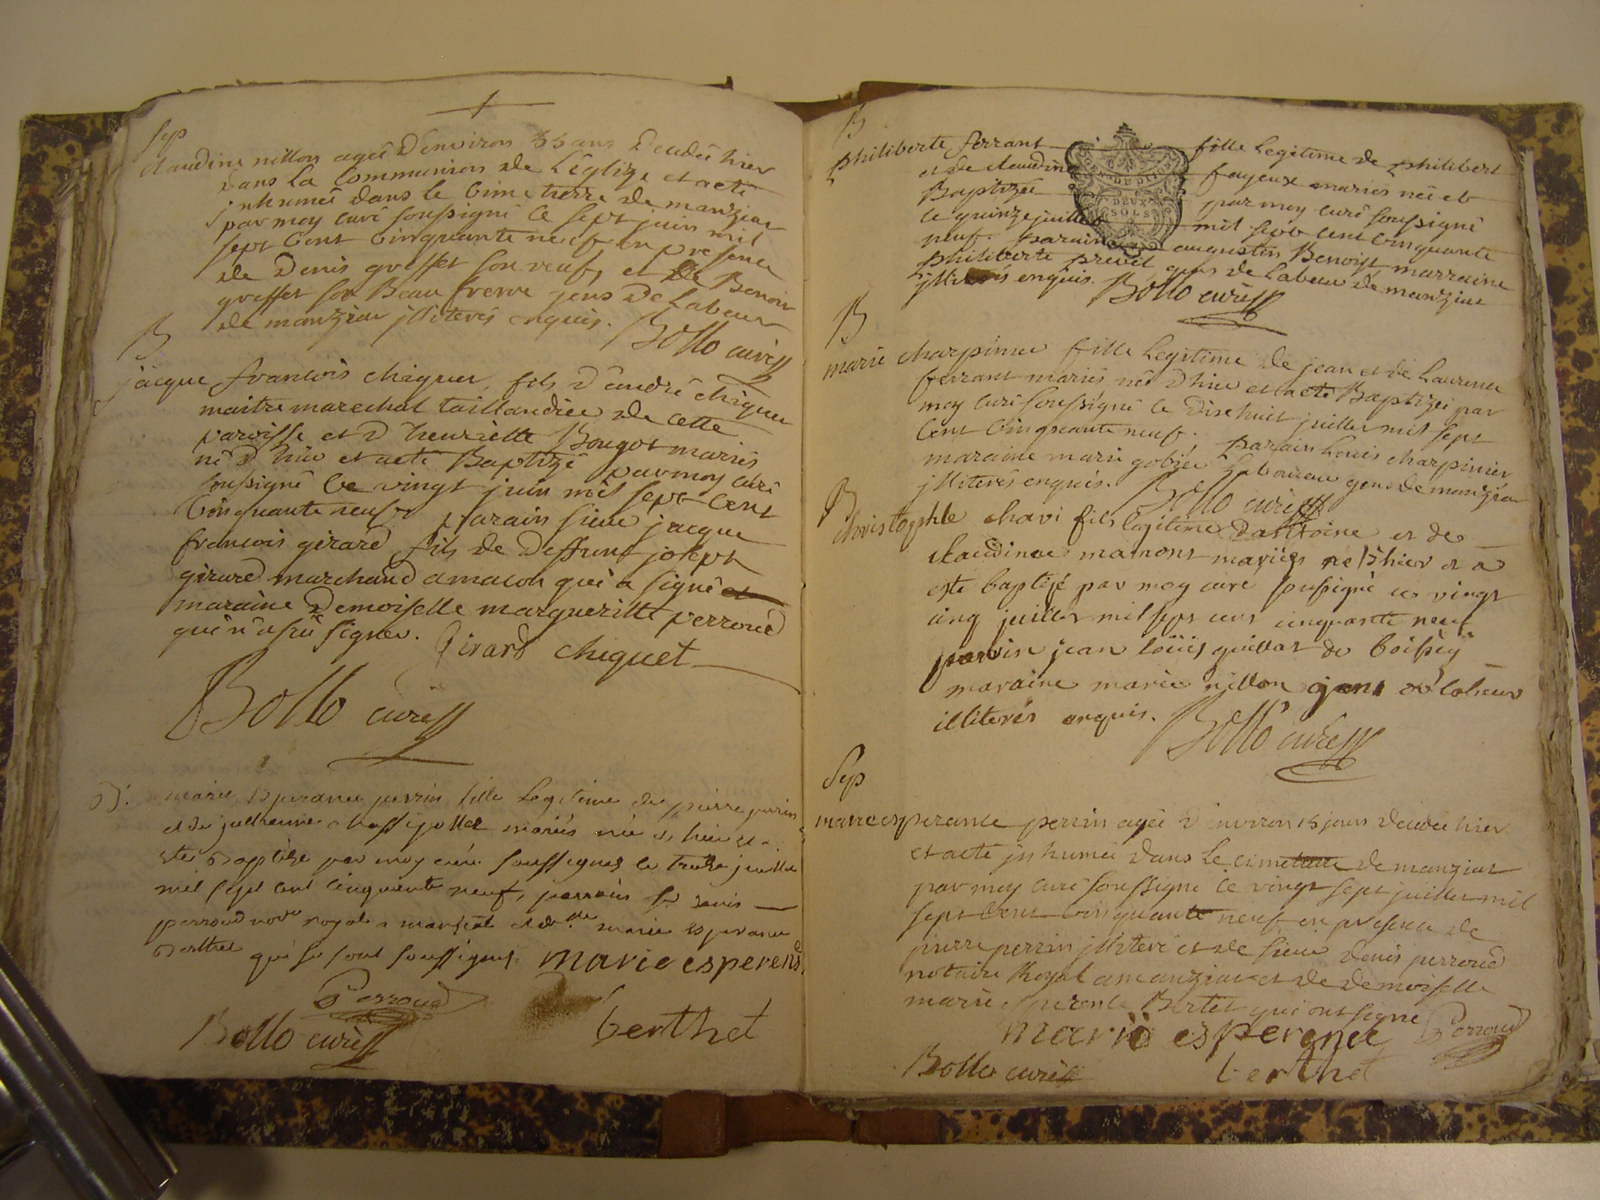 Sep
Claudine nillon ageé d'environ 35 ans decedeé hier
dans la Communion de L'Eglize et aeté
jnhumeé dans le Cimetierre de manziat
par moy curé soussigné Le sept juin mil
sept Cent Cinquante neuf en presence
de Denis groffet son veuf, et de Benoit
groffet son Beau frerre jens de Labeur
de manziat jlliterés enquis. Bollo curé
B
jacque francois chiquet, fils d'andré chiquet
maitre marechal taillandier de cette
parroisse et d'henriette Bougot mariés
né d'hier et aeté Baptizé par moy curé
soussigné Le vingt juin mil sept Cent
Cinquante neuf parain sieur jacque
francois girard fils de deffunt joseph
girard marchand amacon qui a signé
maraine Demoiselle margueritte perroud
qui n'a sçu signer. Girard chiquet
Bollo curé
B.
marie Esperance perrin fille Legitime de pierre perrin
et de jullienne mariés née d'hier et a
eté Baptizée par moy curé soussigné le treize juillet
mil sept cent cinquante neuf, parrain Sr denis
perroud nore royal a manziat et dlle marie Esperance
Berthet qui se sont soussignés. marie esperens
Perroud
Bollo curé berthet
B
philiberte ferrant fille Legitime de philibert
et de claudine fayeux mariés neé et
Baptizeé par moy curé soussigné
le quinze juillet mil sept cent Cinquante
neuf. parain augustin Benoist marraine
philiberte prevel gens de Labeur de manziat
jlliterés enquis. Bollo curé
DEUX
SOLS
B
marie charpinier fille Legitime de jean et de Laurence
ferrant mariés neé d'hier et aeté Baptizeé par
moy curé soussigné Le dixehuit juillet mil sept
Cent Cinquante neuf. parain Louis charpinier
maraine marie gobier Laboureur gens de manziat
jlliterés enquis. Bollo curé
B
Christophle chavi fils legitime d'antoine et de
claudine manont mariés né d'hier et a
esté baptizé par moy curé soussigné ce vingt
cinq juillet mil sept cent cinquante neuf
parain jean loüis guillat de boissey
maraine marie nillon gens de labeur
illiterés enquis. Bollo curé
Sep
marie esperance perrin ageé d'environ 15 jours decedeé hier
et aeté jnhumeé dans Le cimetiere de manziat
par moy curé soussigné Le vingt sept juillet mil
sept Cent cinquante neuf en presence de
pierre perrin jlliteré et de sieur denis perroud
notaire Royal a manziat et de demoiselle
marie esperance Bertet qui ont signé
mariё esperence Perroud
Bollo curé berthet